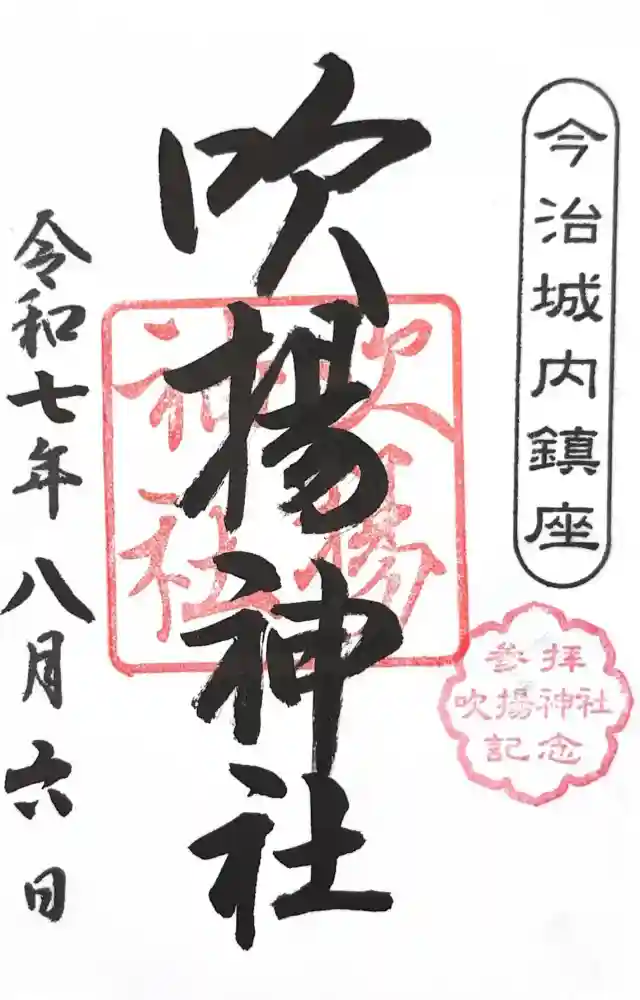 今治城内鎮座
吹揚神社
吹揚
神社
参拝
吹揚神社
記念
令和七年八月六日